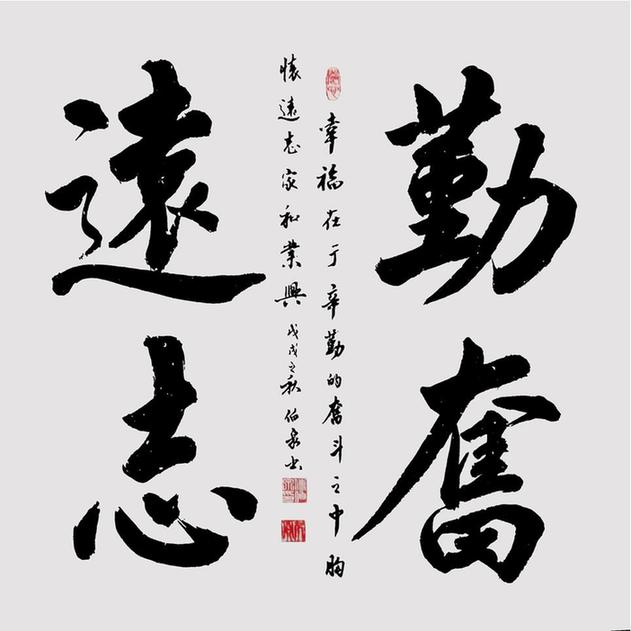 勤奮
遠志
幸福在于辛勤的奮斗之中胸
懷遠志家和業興戊戌之秋伯泉書